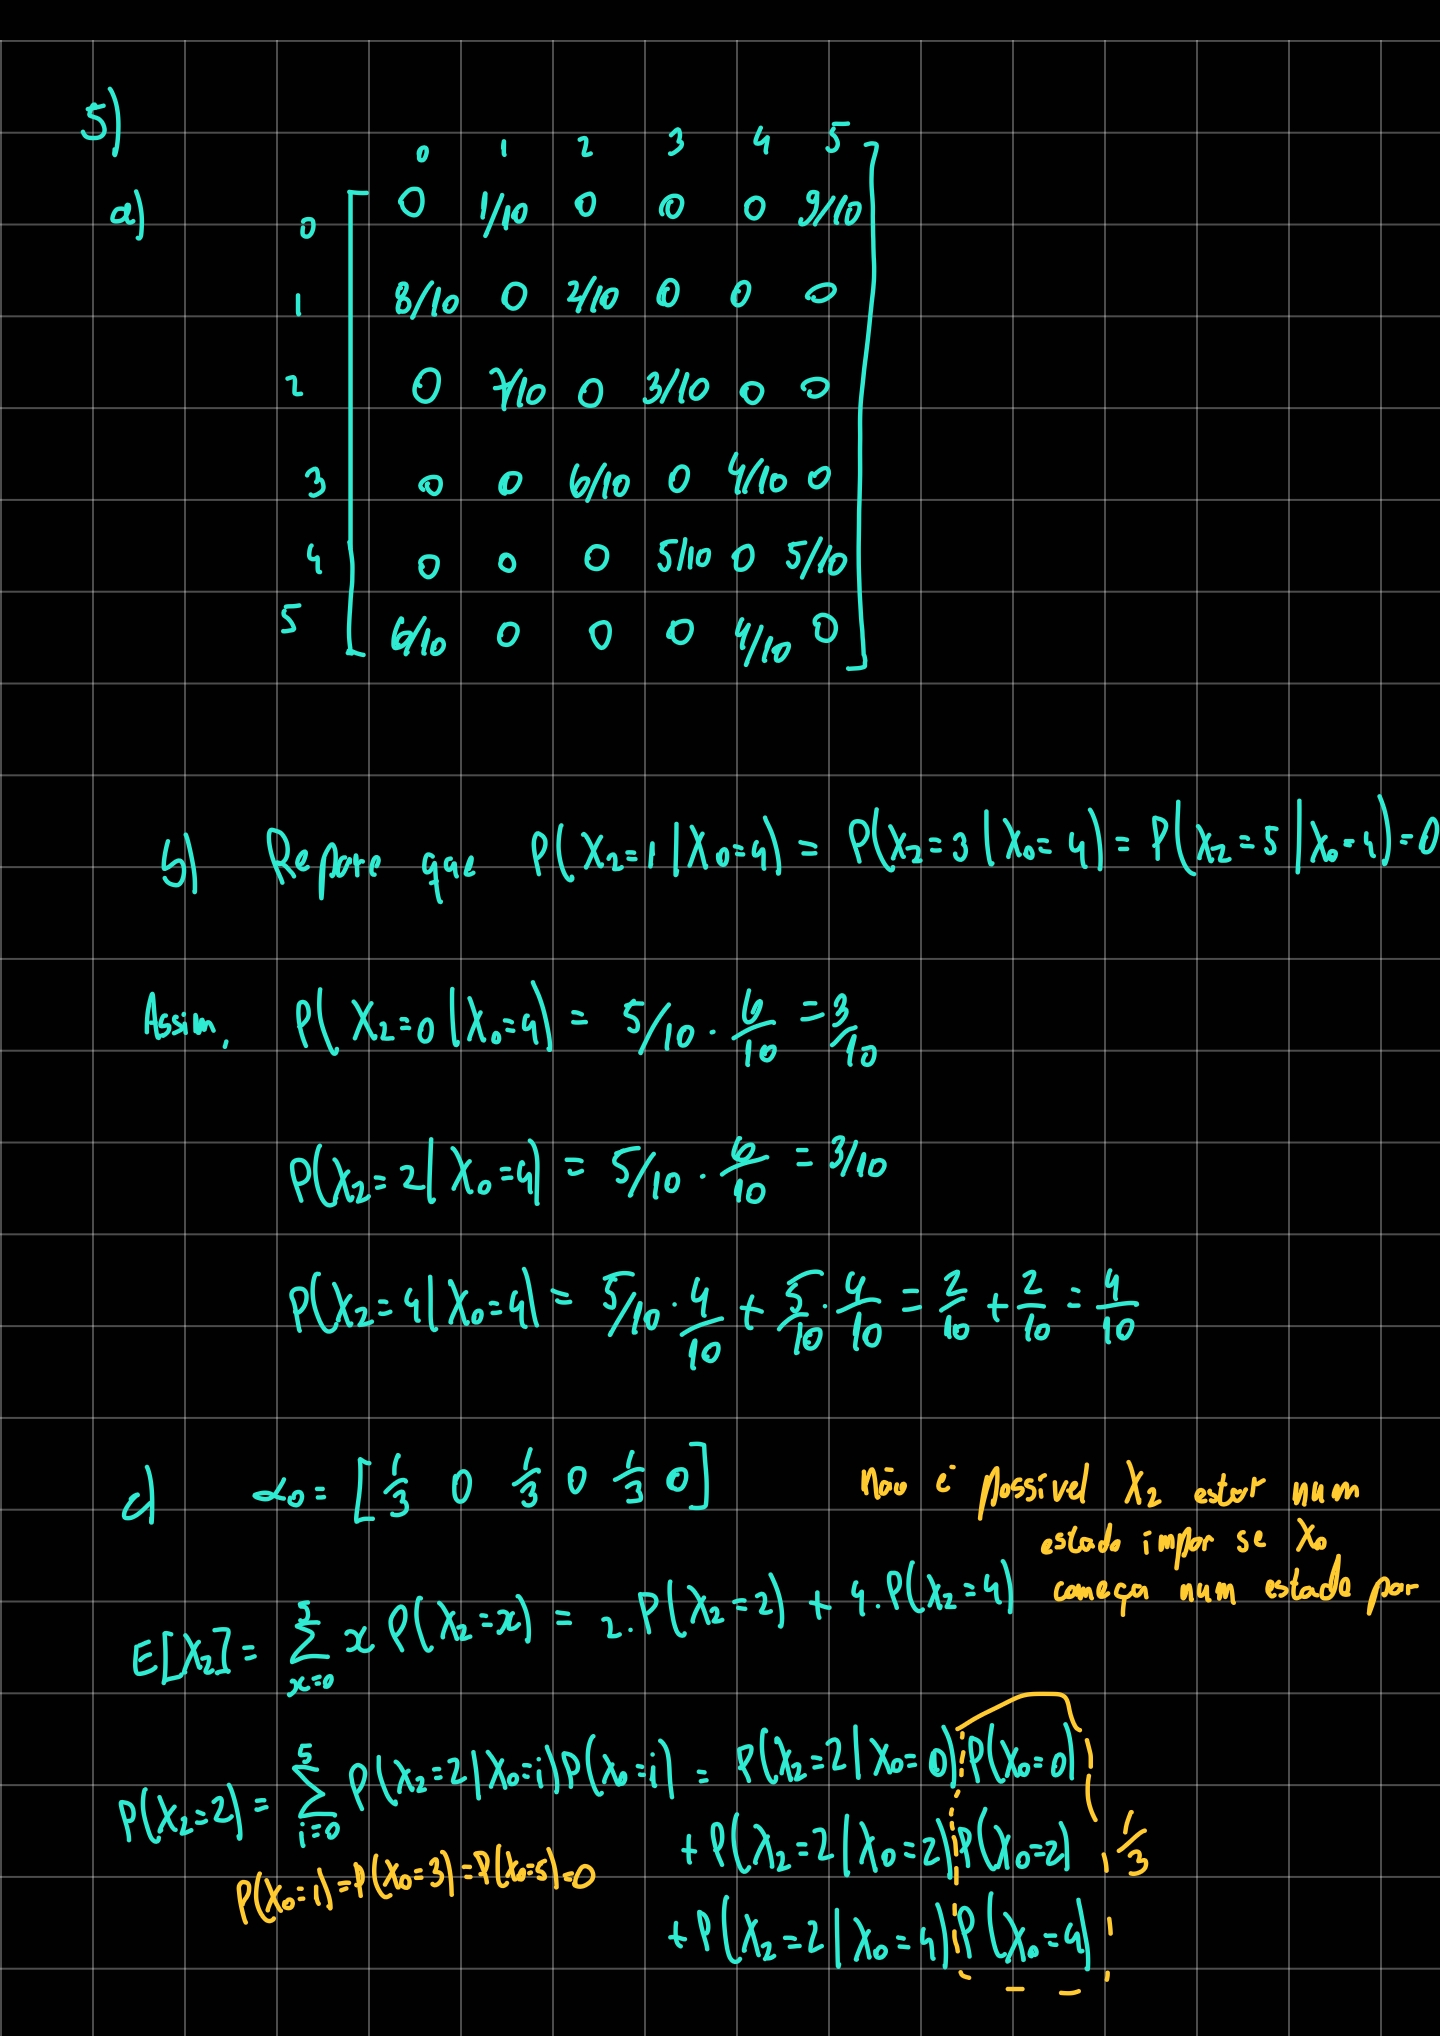 5)
0 1 2 3 4 5
a) 0 0 1/10 0 0 0 9/10
1 8/10 0 2/10 0 0 0
2 0 7/10 0 3/10 0 0
3 0 0 6/10 0 4/10 0
4 0 0 0 5/10 0 5/10
5 6/10 0 0 0 4/10 0
b) Repare que P(X₂=1|X₀=4) = P(X₂=3|X₀=4) = P(X₂=5|X₀=4)=0
Assim, P(X₂=0|X₀=4) = 5/10 · 6/10 = 3/10
P(X₂=2|X₀=4) = 5/10 · 6/10 = 3/10
P(X₂=4|X₀=4) = 5/10 · 4/10 + 5/10 · 4/10 = 2/10 + 2/10 = 4/10
c) α₀ = [1/3 0 1/3 0 1/3 0]
não é possível X₂ estar num
estado impar se X₀
começa num estado par
E[X₂] = Σ_{x=0}^{5} x P(X₂=x) = 2.P(X₂=2) + 4.P(X₂=4)
P(X₂=2) = Σ_{i=0}^{5} P(X₂=2|X₀=i)P(X₀=i) = P(X₂=2|X₀=0)P(X₀=0)
+ P(X₂=2|X₀=2)P(X₀=2) 1/3
P(X₀=1)=P(X₀=3)=P(X₀=5)=0
+ P(X₂=2|X₀=4)P(X₀=4)